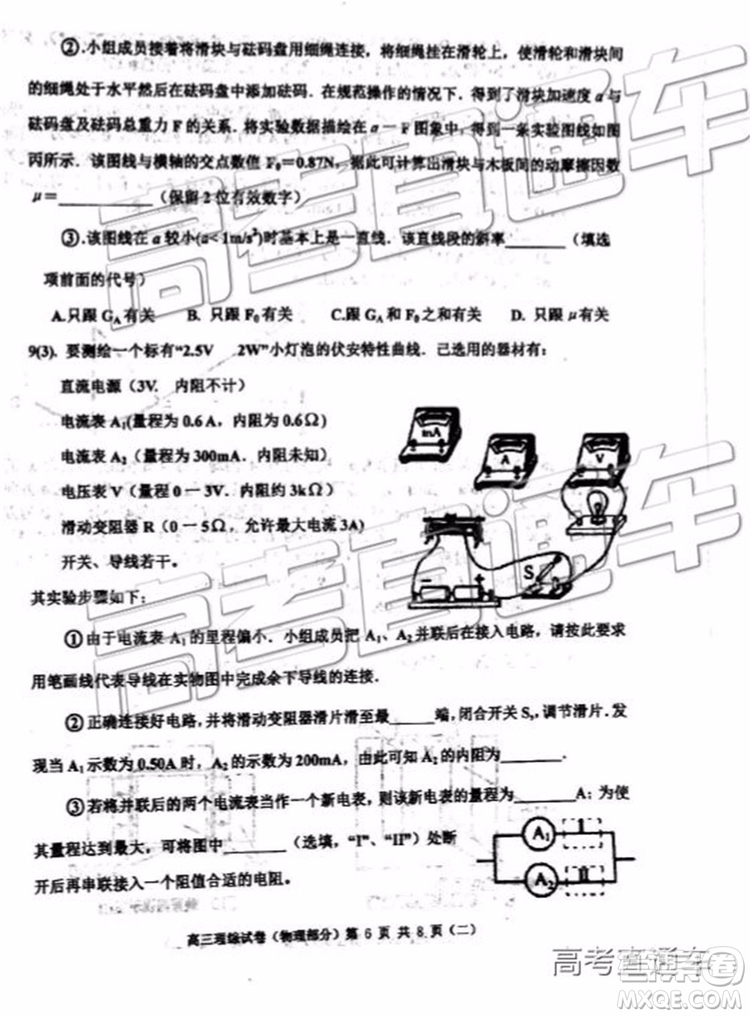 ②.小组成员接着将滑块与砝码盘用细绳连接，将细绳挂在滑轮上，使滑轮和滑块间
的细绳处于水平然后在砝码盘中添加砝码．在规范操作的情况下．得到了滑块加速度 a 与
砝码盘及砝码总重力 F 的关系．将实验数据描绘在 a — F 图象中．得到一条实验图线如图
丙所示．该图线与横轴的交点数值 F₀=0.87N，据此可计算出滑块与木板间的动摩擦因数
μ=________（保留 2 位有效数字）
③.该图线在 a 较小(a<1m/s²)时基本上是一直线．该直线段的斜率______（填选
项前面的代号）
A.只跟 G_A 有关 B. 只跟 F₀ 有关 C.只跟 G_A 和 F₀ 之和有关 D. 只跟 μ 有关
9(3). 要测绘一个标有“2.5V 2W”小灯泡的伏安特性曲线．己选用的器材有：
直流电源（3V. 内阻不计）
电流表 A₁(量程为 0.6 A，内阻为 0.6Ω）
电流表 A₂（量程为 300mA．内阻未知）
电压表 V（量程 0 一 3V．内阻约 3kΩ）
滑动变阻器 R（0 一 5Ω，允许最大电流 3A)
开关、导线若干。
mA
A
V
S
−
+
其实验步骤如下：
①由于电流表 A₁ 的里程偏小．小组成员把 A₁、A₂ 并联后在接入电路，请按此要求
用笔画线代表导线在实物图中完成余下导线的连接．
②正确连接好电路，并将滑动变阻器滑片滑至最_____端，闭合开关 S，调节滑片．发
现当 A₁ 示数为 0.50A 时，A₂ 的示数为 200mA，由此可知 A₂ 的内阻为_______．
③若将并联后的两个电流表当作一个新电表，则该新电表的量程为_______A；为使
其量程达到最大，可将图中_______（选填，“I”、“II”）处断
开后再串联接入一个阻值合适的电阻．
A₁
I
A₂
II
高三理综试卷（物理部分）第 6 页 共 8 页（二）
高考直通车
高考直通车
高考直通车
MXQE.COM